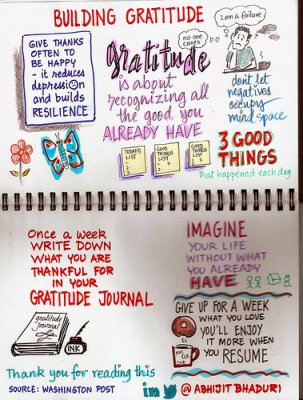 BUILDING GRATITUDE
GIVE THANKS
OFTEN TO
BE HAPPY
- it reduces
depression
and builds
RESILIENCE
no one
cares
I am a failure
Gratitude
is about
recognizing all
the good you
ALREADY HAVE
dont let
negatives
occupy
mind space
TODAY'S
LIST
GOOD
THINGS
LIST
GOOD
THINGS
LIST
3 GOOD
THINGS
that happened each day
Once a week
WRITE DOWN
WHAT YOU ARE
THANKFUL FOR
IN YOUR
GRATITUDE JOURNAL
gratitude
Journal
INK
IMAGINE
YOUR LIFE
WITHOUT WHAT
YOU ALREADY
HAVE
GIVE UP FOR A WEEK
WHAT YOU LOVE
YOU'LL ENJOY
IT MORE WHEN
YOU RESUME
Thank you for reading this
SOURCE: WASHINGTON POST
in
@ABHIJITBHADURI